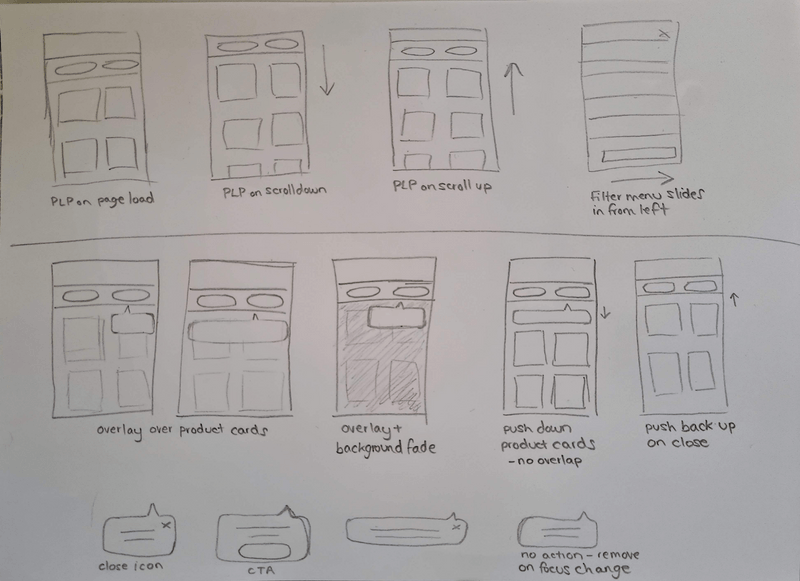 PLP on page load
PLP on scrolldown
PLP on scroll up
filter menu slides
in from left
overlay over product cards
overlay +
background fade
push down
product cards
- no overlap
push back up
on close
close icon
CTA
no action - remove
on focus change